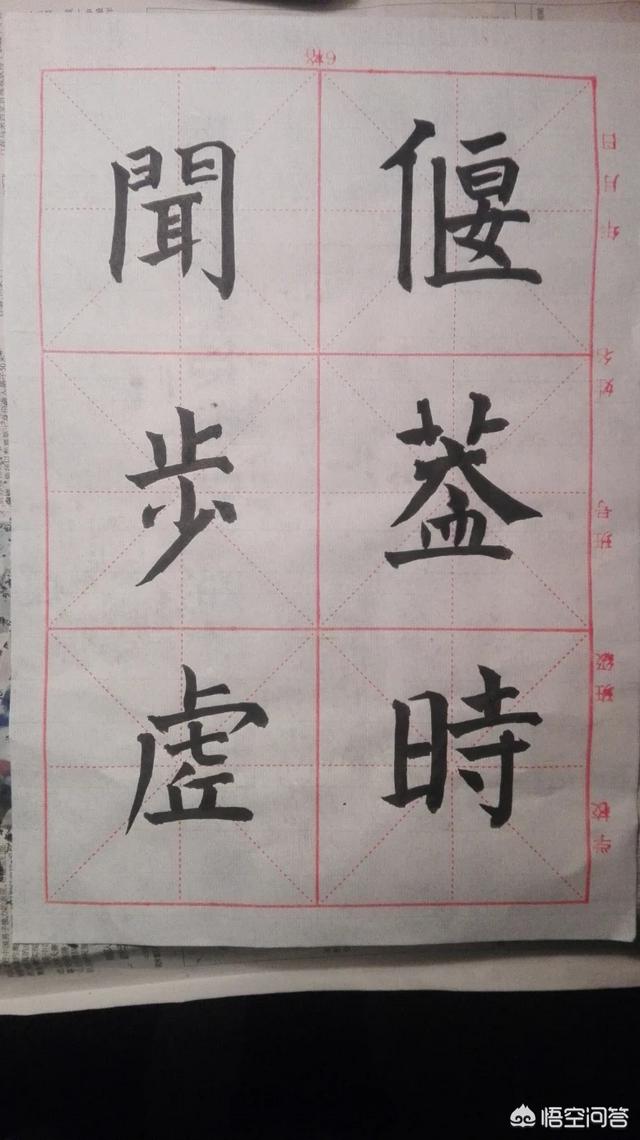 偃蓋時
聞步虛
6格
学校
班级
班号
姓名
年月日
悟空问答